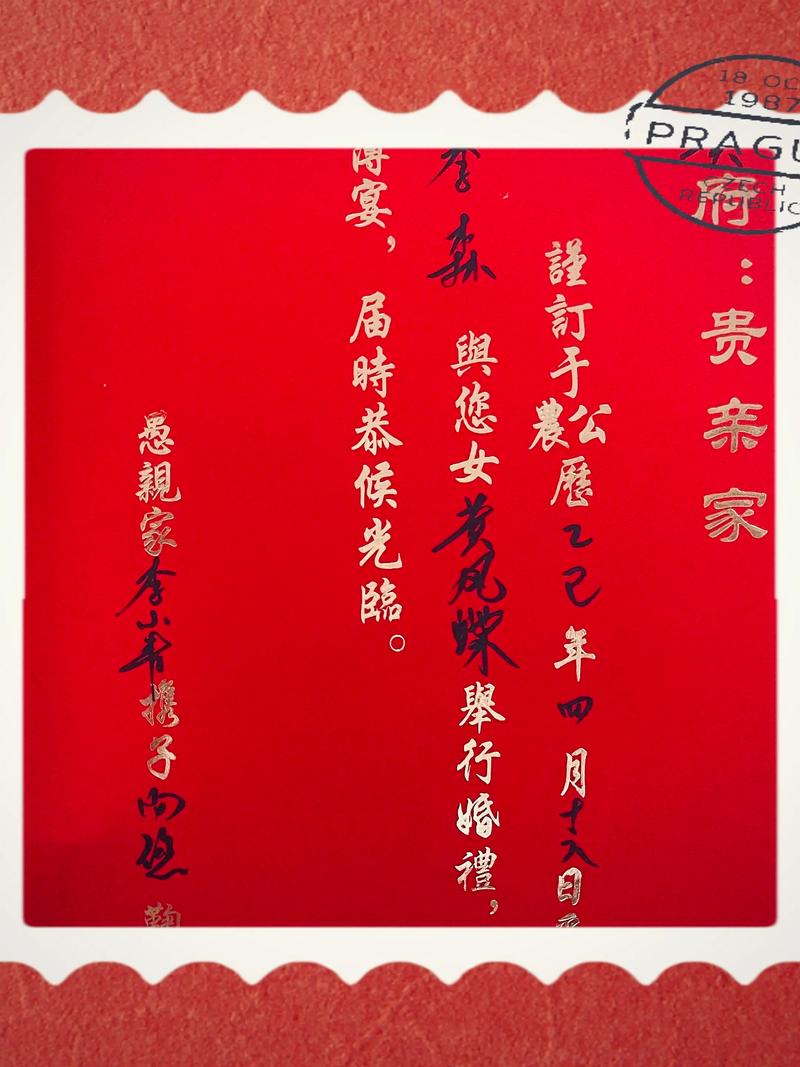 18 OC
1987
PRAGU
CZECH
REPUBLIC
府：贵亲家
謹訂于公農歷乙巳年四月十八日
森 與您女黄凤蝶舉行婚禮，
薄宴，届時恭候光臨。
愚親家李小青携子向 鞠